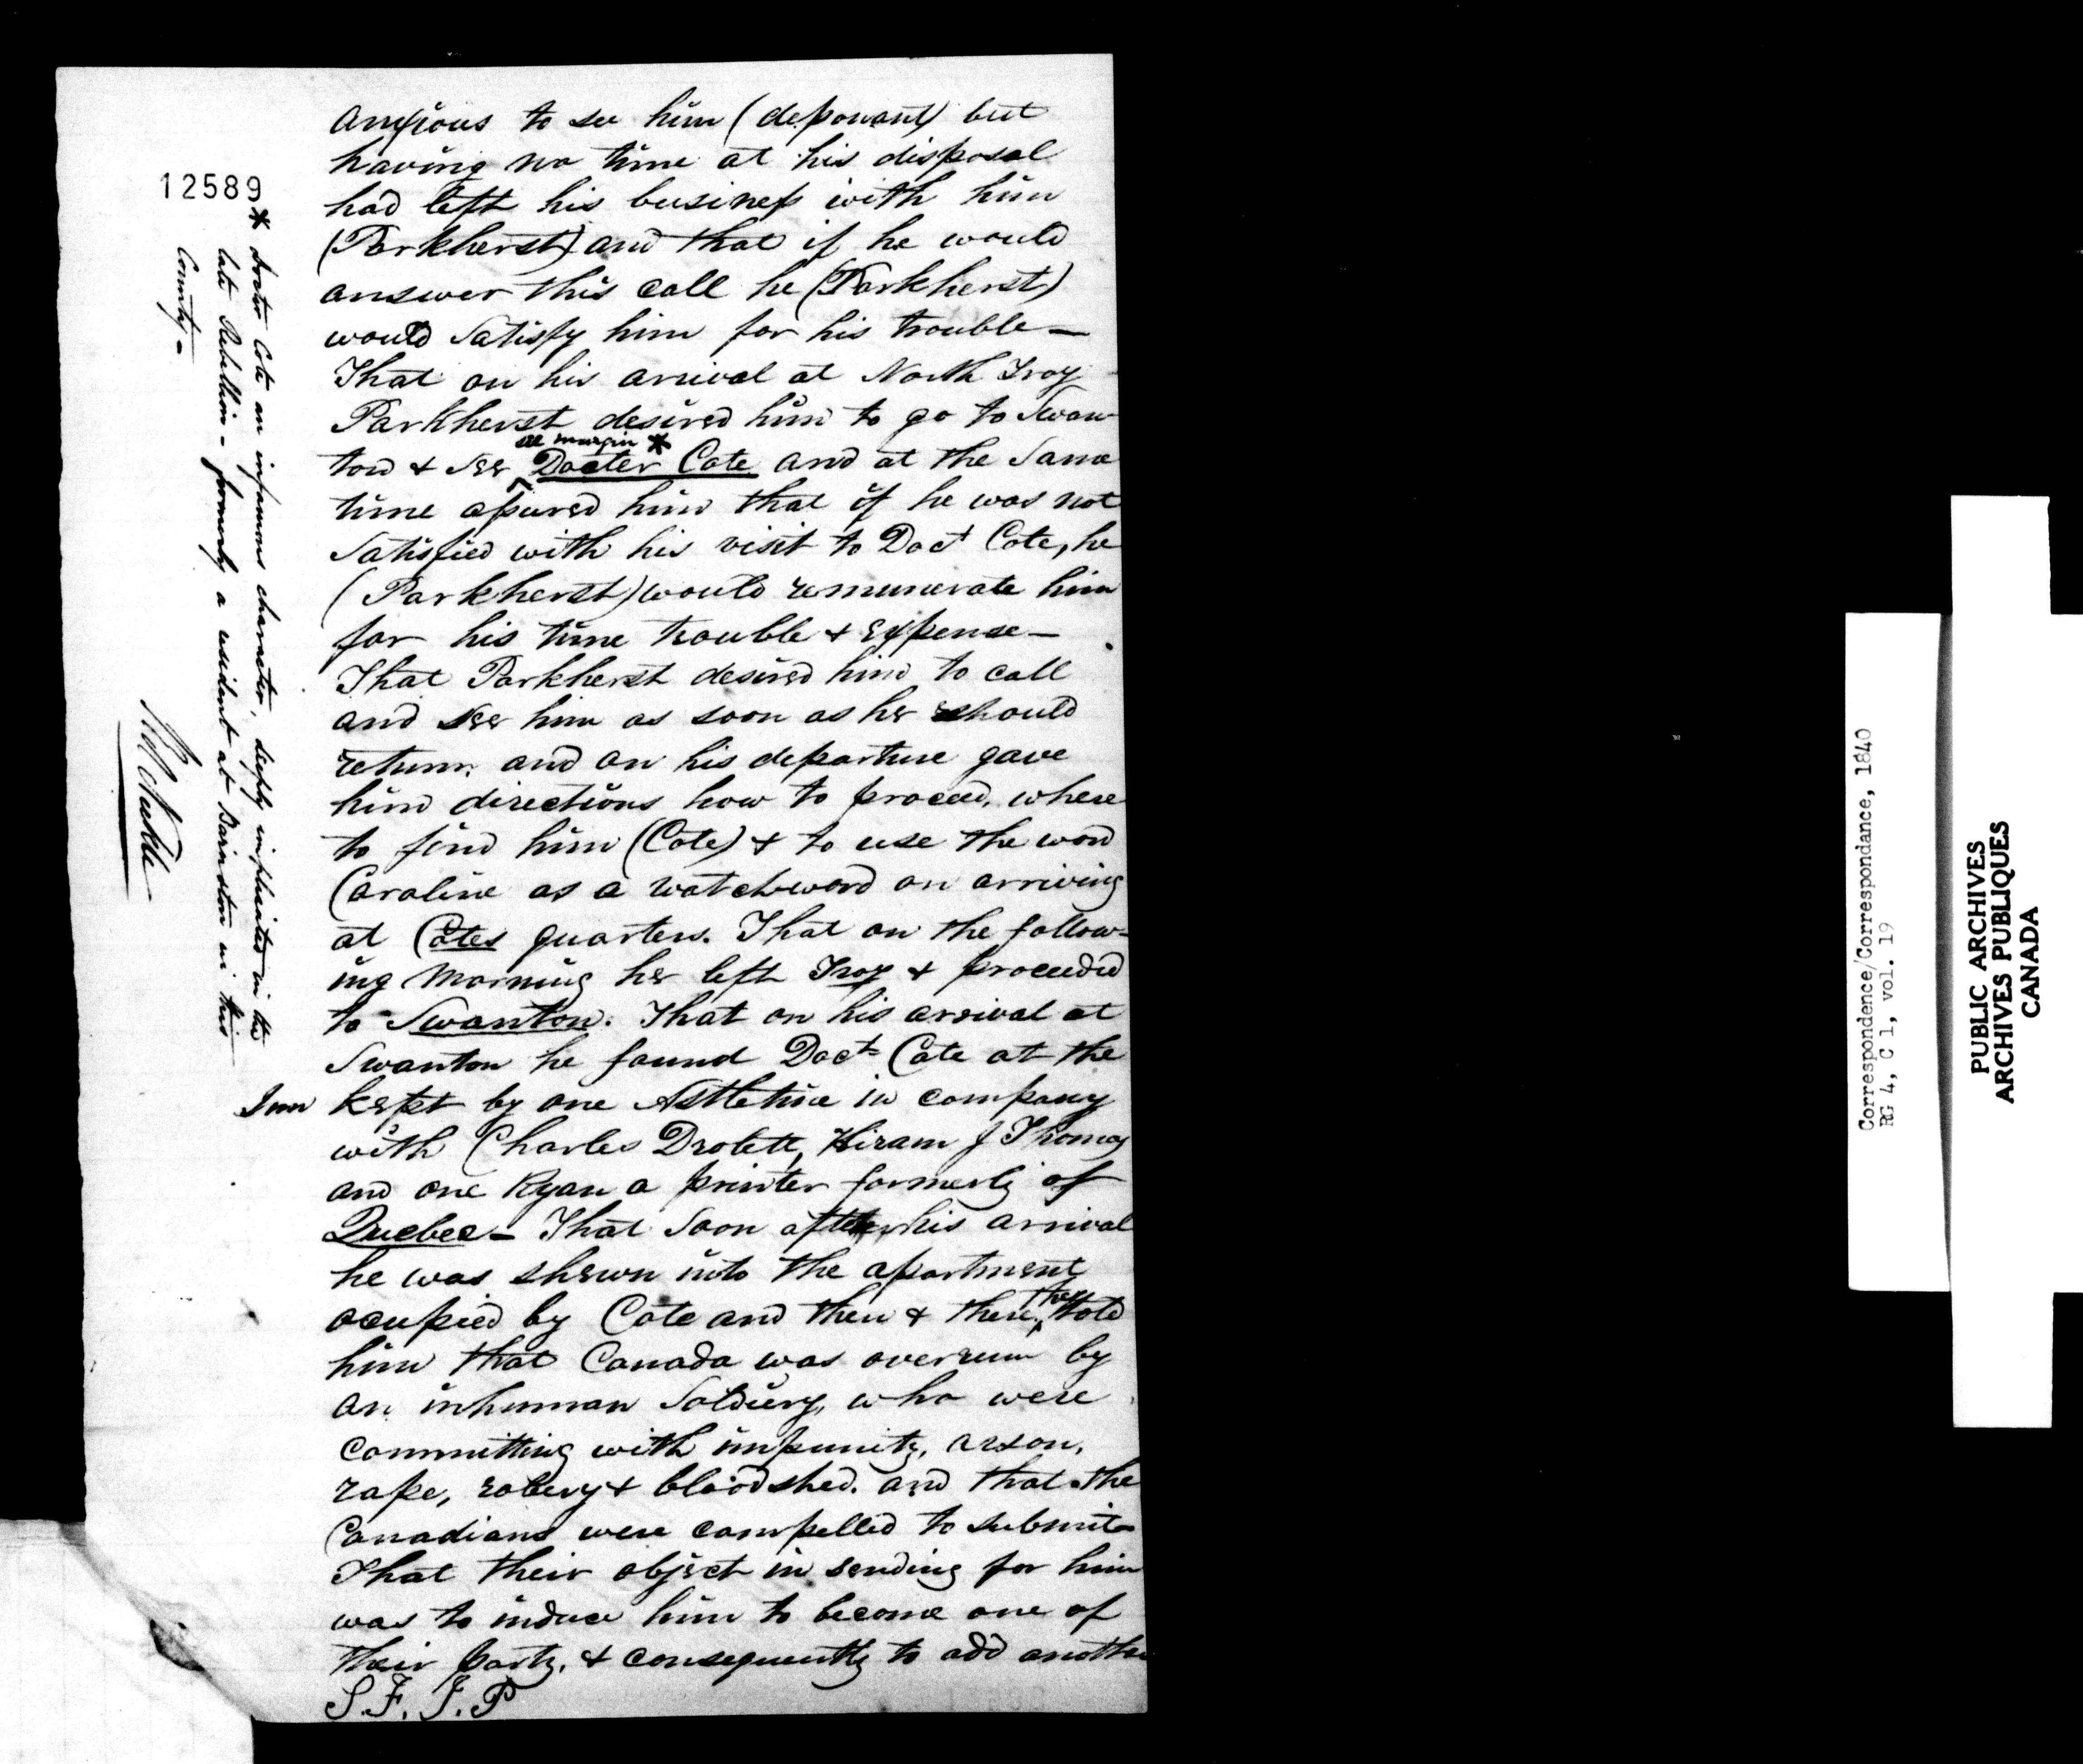 anxious to see him (deponant) but
having no time at his disposal
had left his business with him
(Parkherst) and that if he would
answer this call he (Parkherst)
would satisfy him for his trouble —
That on his arrival at North Troy
Parkherst desired him to go to Swan
see margin *
ton & see Docter Cote and at the same
time assured him that if he was not
satisfied with his visit to Doct Cote, he
(Parkherst) would remunerate him
for his time trouble & expense —
That Parkherst desired him to call
and see him as soon as he should
return. and on his departure gave
him directions how to proceed, where
to find him (Cote) & to use the word
Caroline as a watchword on arriving
at Cotes quarters. That on the follow-
ing morning he left Troy & proceeded
to Swanton. That on his arrival at
Swanton he found Doct Cote at the
Inn kept by one in company
with Charles Drolett, Hiram J Thomas
and one Ryan a printer formerly of
Quebec — That soon after his arrival
he was shewn into the apartment
ocupied by Cote and then & there they told
him that Canada was overrun by
an inhuman soldiery, who were
committing with impunity, arson,
rape, robery & bloodshed. and that the
Canadians were compelled to submit —
That their object in sending for him
was to induce him to become one of
their party, & consequently to add another
S.F. J.P
12589
* Doctor Cote an infamous character, deeply implicated in the
late Rebellion - formerly a resident at Barnston in this
County -
Correspondence/Correspondance, 1840
RG 4, C 1, vol. 19
PUBLIC ARCHIVES
ARCHIVES PUBLIQUES
CANADA